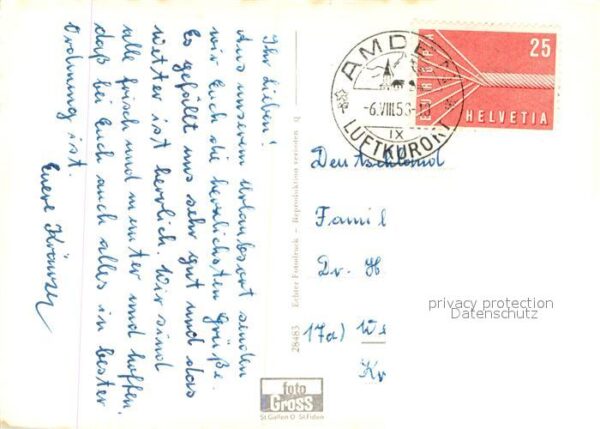 Ihr Lieben!
Aus unserem Urlaubsort senden
wir Euch die herzlichsten Grüße.
Es gefällt uns sehr gut und das
Wetter ist herrlich. Wir sind
alle frisch und munter und hoffen,
daß bei Euch auch alles in bester
Ordnung ist.
Euere
28483 Echter Fotodruck — Reproduktion verboten
foto
Gross
St. Gallen O St. Fiden
AMDEN
-6.VIII.5
IX
LUFTKURORT
EUROPA
25
HELVETIA
Deutschland
Famil
Dr. H
17a)
Kr
privacy protection
Datenschutz